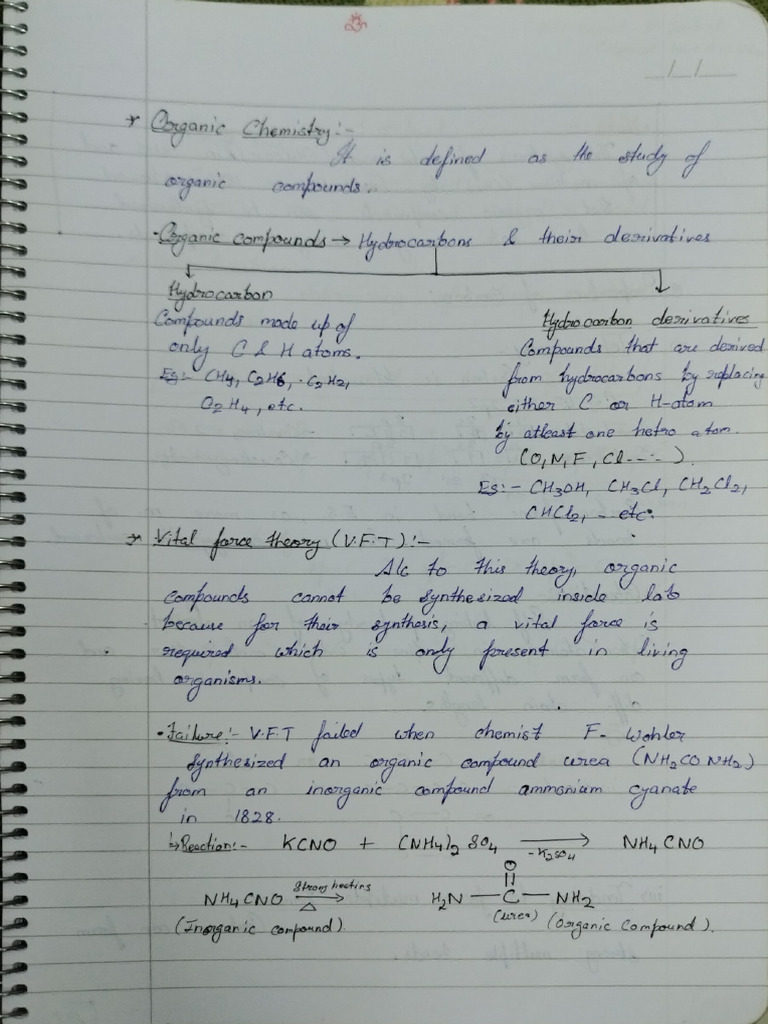 * Organic Chemistry:-
It is defined as the study of
organic compounds.
• Organic compounds → Hydrocarbons & their derivatives
Hydrocarbon
Compounds made up of
only C & H atoms.
Eg:- CH4, C2H6, C2H2,
C2H4, etc.
Hydrocarbon derivatives
Compounds that are derived
from hydrocarbons by replacing
either C or H-atom
by atleast one hetro atom.
(O, N, F, Cl ----).
Eg:- CH3OH, CH3Cl, CH2Cl2,
CHCl2, - etc.
* Vital force theory (V.F.T):-
A/c to this theory, organic
compounds cannot be synthesized inside lab
because for their synthesis, a vital force is
required which is only present in living
organisms.
• Failure:- V.F.T failed when chemist F. Wohler
synthesized an organic compound urea (NH2CONH2)
from an inorganic compound ammonium cyanate
in 1828.
↳ Reaction:- KCNO + (NH4)2 SO4 → NH4CNO
-K2SO4
O
NH4CNO Strong heating Δ → H2N — C — NH2
(Inorganic compound). (Urea) (Organic Compound).